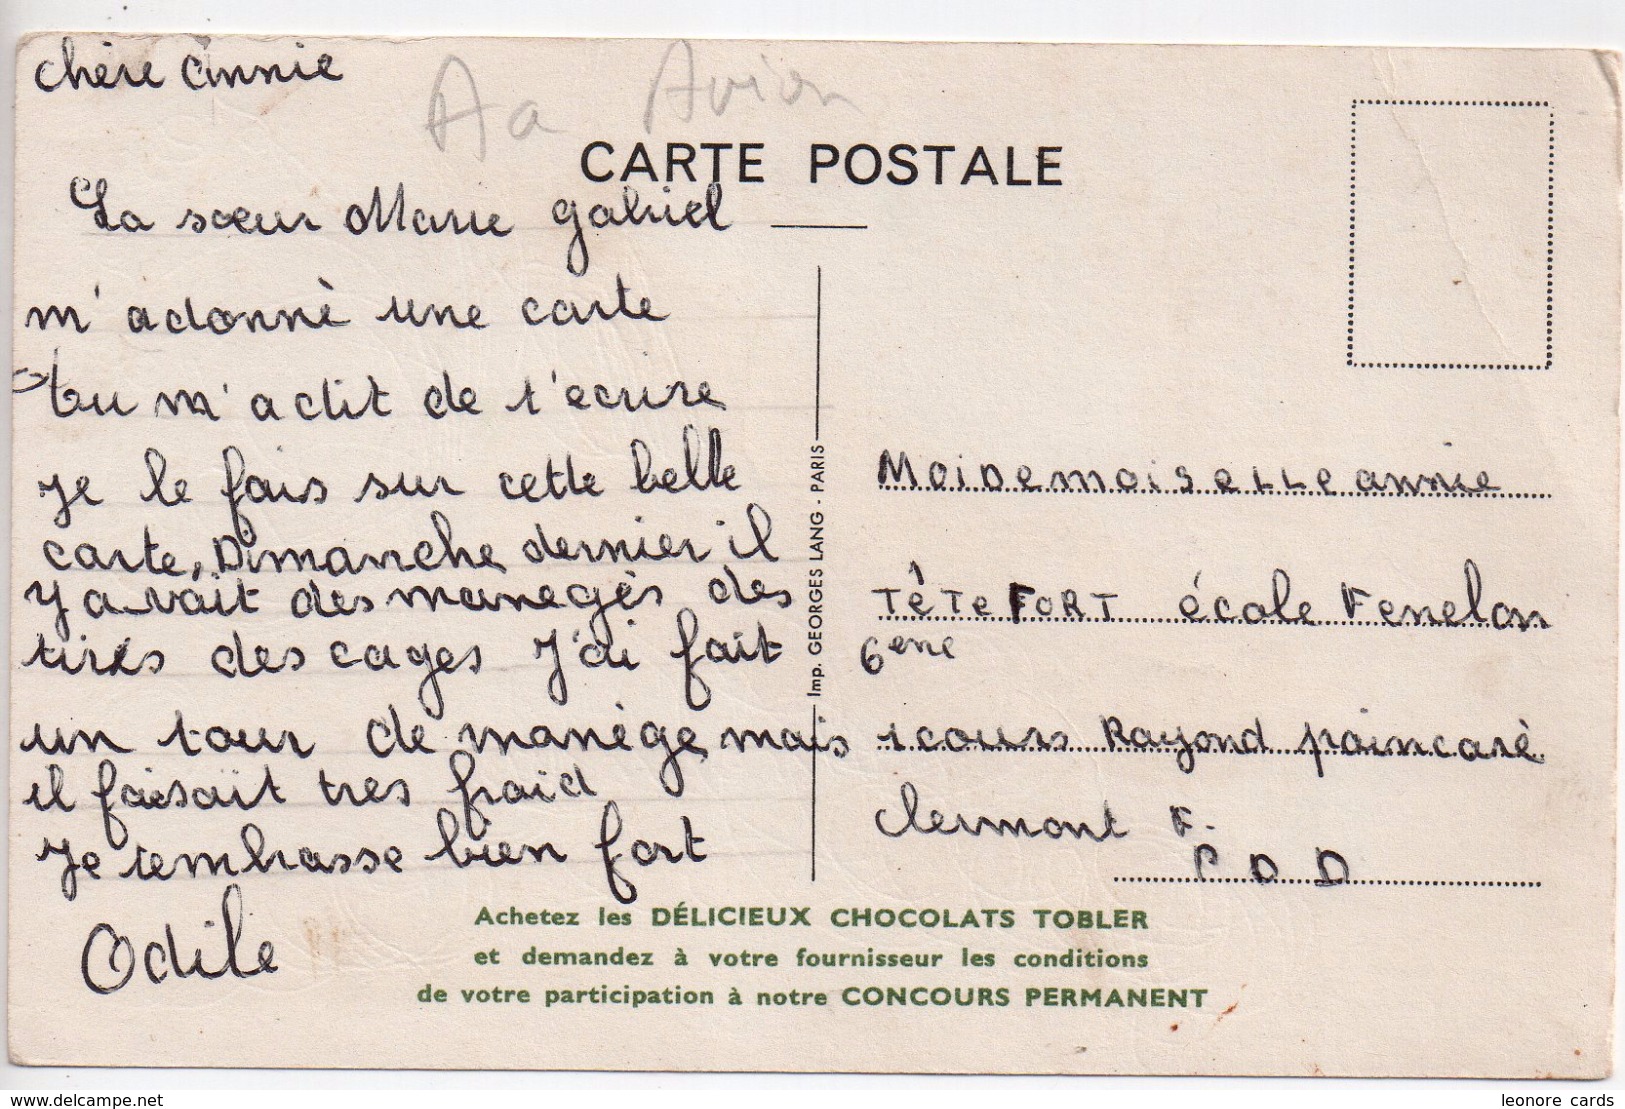 chère Annie
Aa Avion
CARTE POSTALE
La sœur Marie gabriel
m'adonnè une carte
tu m'a dit de t'ecrire
je le fais sur cette belle
carte, Dimanche dernier il
y avait des maneges des
tires des cages J'ai fait
un tour de manège mais
il faisait tres froid
Je t'embrasse bien fort
Odile
Imp. GEORGES LANG - PARIS
MoiDemoiseLLe annie
TêTeFORT école Fenelon
6eme
1 cours Raymond poincarè
Clermont F.
P D D
Achetez les DÉLICIEUX CHOCOLATS TOBLER
et demandez à votre fournisseur les conditions
de votre participation à notre CONCOURS PERMANENT
www.delcampe.net
leonore cards